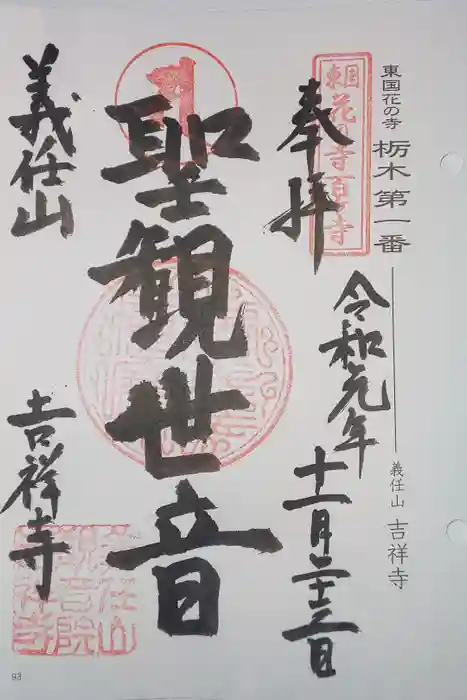 東国花の寺 栃木第一番
義任山 吉祥寺
東国花の寺百ヶ寺
奉拝
令和元年
十一月二十三日
聖観世音
義任山
吉祥寺
義任山
観音院
吉祥寺
93